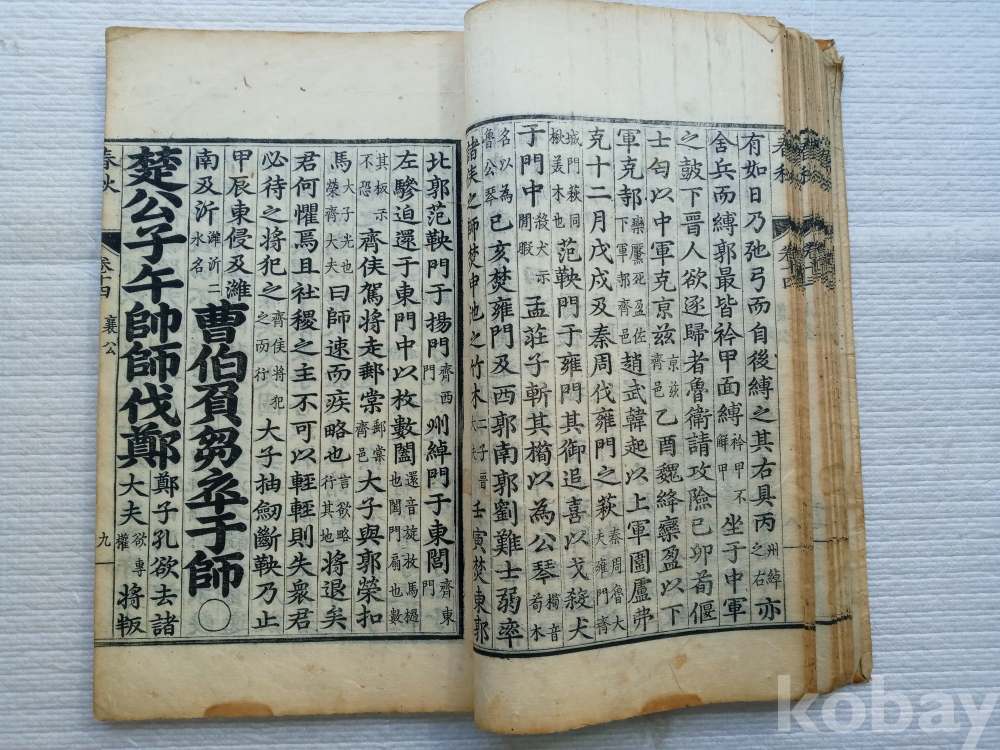 有如日乃弛弓而自後縛之其右具丙州綽之右亦
舍兵而縛郭最皆衿甲面縛衿甲不解甲坐于中軍
之鼓下晉人欲逐歸者魯衛請攻險己卯荀偃
士匄以中軍克京玆京玆齊邑乙酉魏絳欒盈以下
軍克邿欒黶死盈佐下軍邿齊邑趙武韓起以上軍圍盧弗
克十二月戊戌及秦周伐雍門之萩秦周魯大夫雍門齊
城門萩同楸美木也范鞅門于雍門其御追喜以戈殺犬
于門中殺犬示閒暇孟莊子斬其橁以為公琴橁音荀木
名以為魯公琴己亥焚雍門及西郭南郭劉難士弱率
諸侯之師焚申池之竹木二子晉大夫壬寅焚東郭
北郭范鞅門于揚門齊西門州綽門于東閭齊東門
左驂迫還于東門中以枚數闔還音旋枚馬檛也闔門扇也數
其板示不恐齊侯駕將走郵棠郵棠齊邑大子與郭榮扣
馬大子光也榮齊大夫曰師速而疾略也言欲略行其地將退矣
君何懼焉且社稷之主不可以輕輕則失衆君
必待之將犯之齊侯將犯之而行大子抽劒斷鞅乃止
甲辰東侵及濰
南及沂濰沂二水名
曹伯負芻卒于師○
楚公子午帥師伐鄭
鄭子孔欲去諸
大夫欲專權將叛
春秋 卷十四 襄公 九
春秋 卷十四
卷十三
kobay